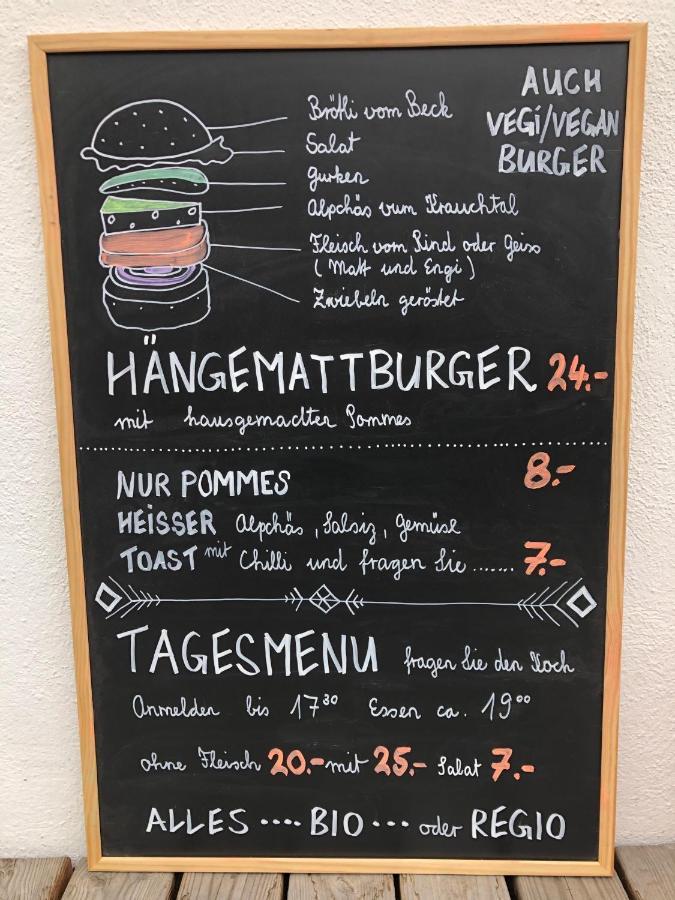 AUCH
VEGI/VEGAN
BURGER
Brötli vom Beck
Salat
Gurken
Alpchäs vum Krauchtal
Fleisch vom Rind oder Geiss
(Matt und Engi)
Zwiebeln geröstet
HÄNGEMATTBURGER 24.-
mit hausgemachter Pommes
NUR POMMES 8.-
HEISSER Alpchäs, Salsiz, Gemüse
TOAST mit Chilli und fragen Sie ....... 7.-
TAGESMENU fragen Sie den Koch
Anmelden bis 17³⁰ Essen ca. 19⁰⁰
ohne Fleisch 20.- mit 25.- Salat 7.-
ALLES .... BIO ... oder REGIO